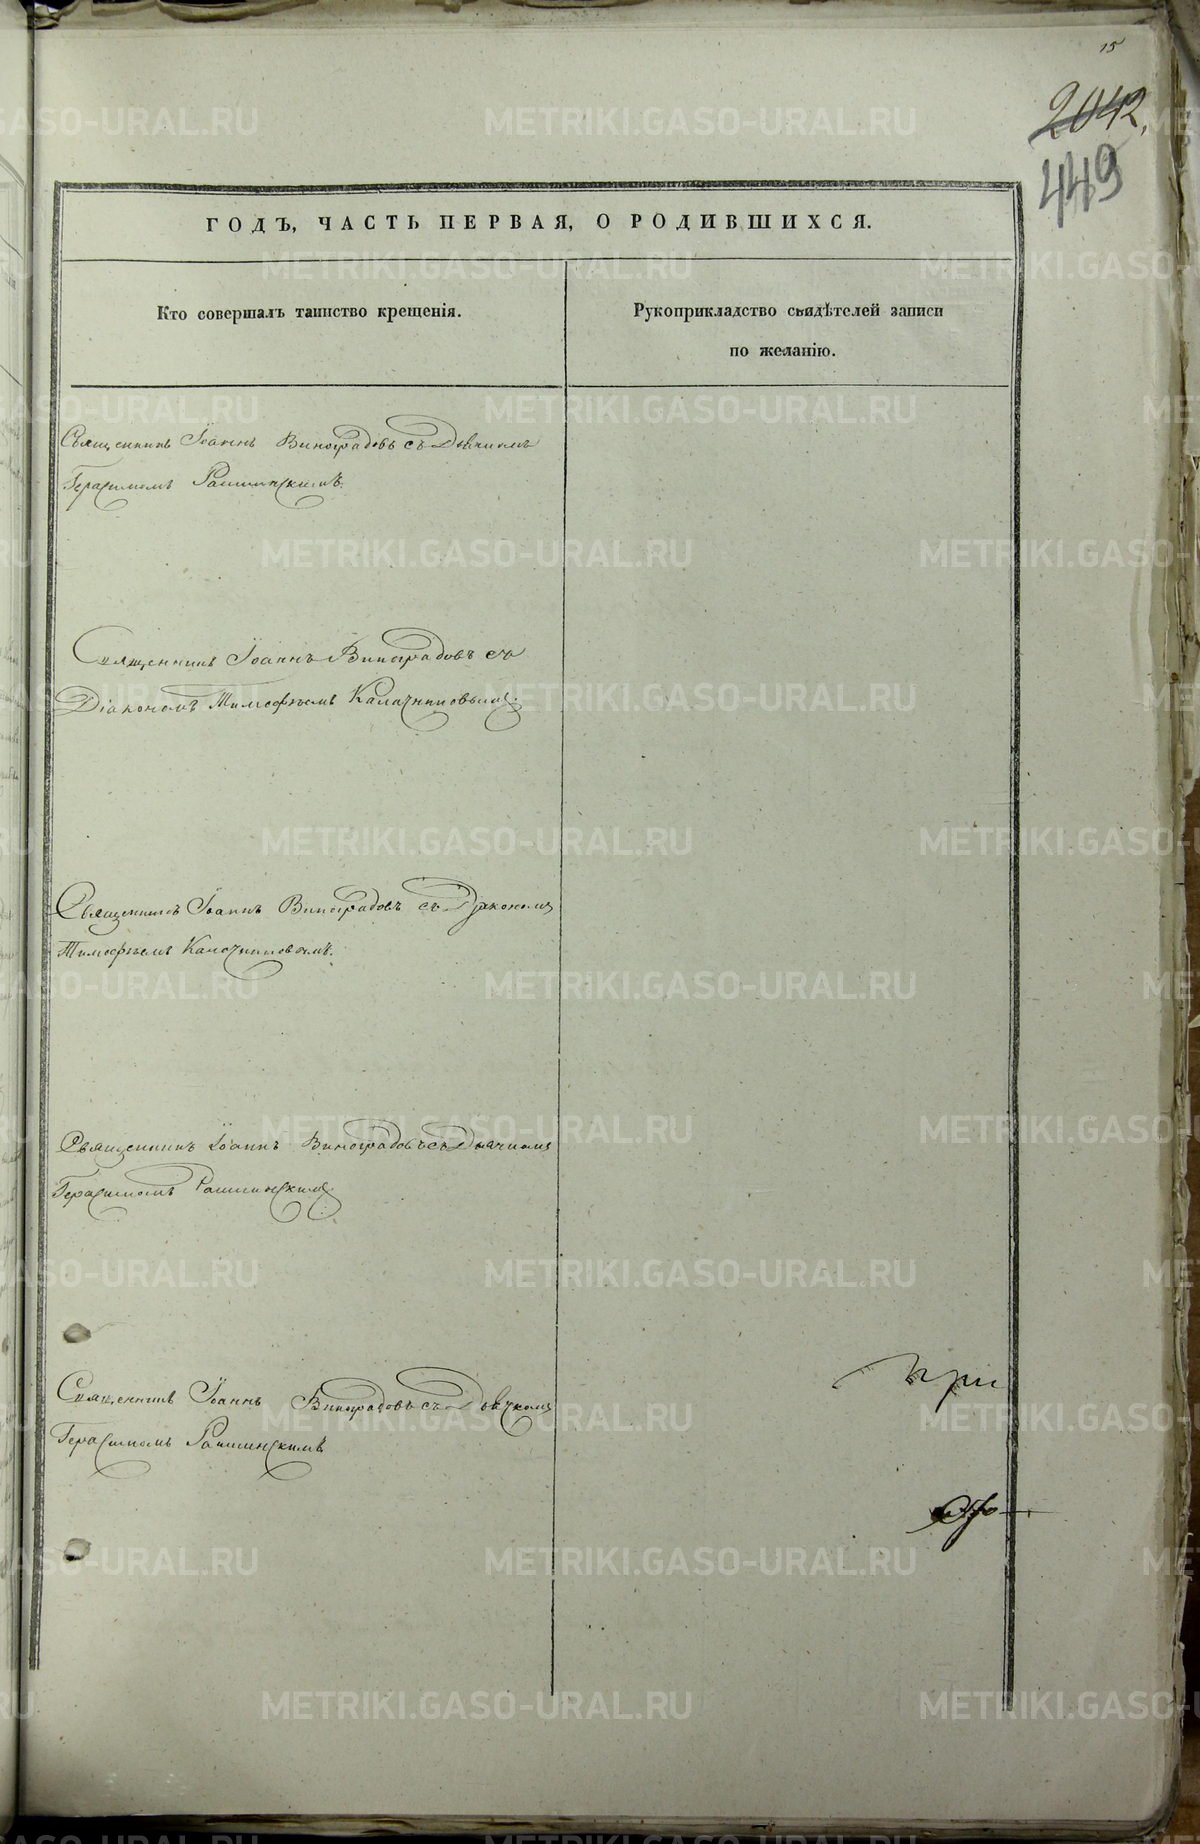 15
2042,
449
ГОДЪ, ЧАСТЬ ПЕРВАЯ, О РОДИВШИХСЯ.
Кто совершалъ таинство крещенія.
Рукоприкладство свидѣтелей записи
по желанію.
Священникъ Іоаннъ Виноградовъ съ Дьячкомъ
Герасимомъ
Священникъ Іоаннъ Виноградовъ съ
Діакономъ Тимофѣемъ Калачниковымъ.
Священникъ Іоаннъ Виноградовъ съ Діакономъ
Тимофѣемъ Калачниковымъ.
Священникъ Іоаннъ Виноградовъ съ Дьячкомъ
Герасимомъ
Священникъ Іоаннъ Виноградовъ съ Дьячкомъ
Герасимомъ
при
METRIKI.GASO-URAL.RU